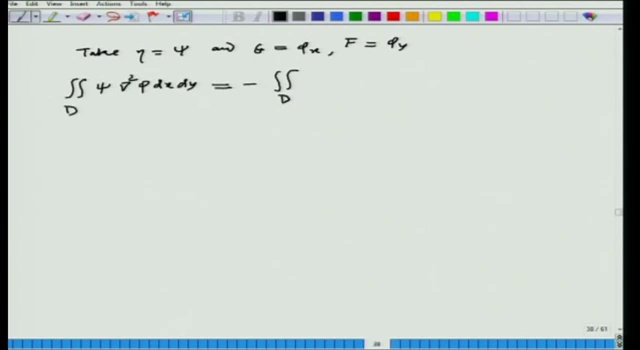 File Edit View Insert Actions Tools Help
Take η = ψ and G = φx, F = φy
∬D ψ ∇²φ dx dy = - ∬D
38 / 61
38